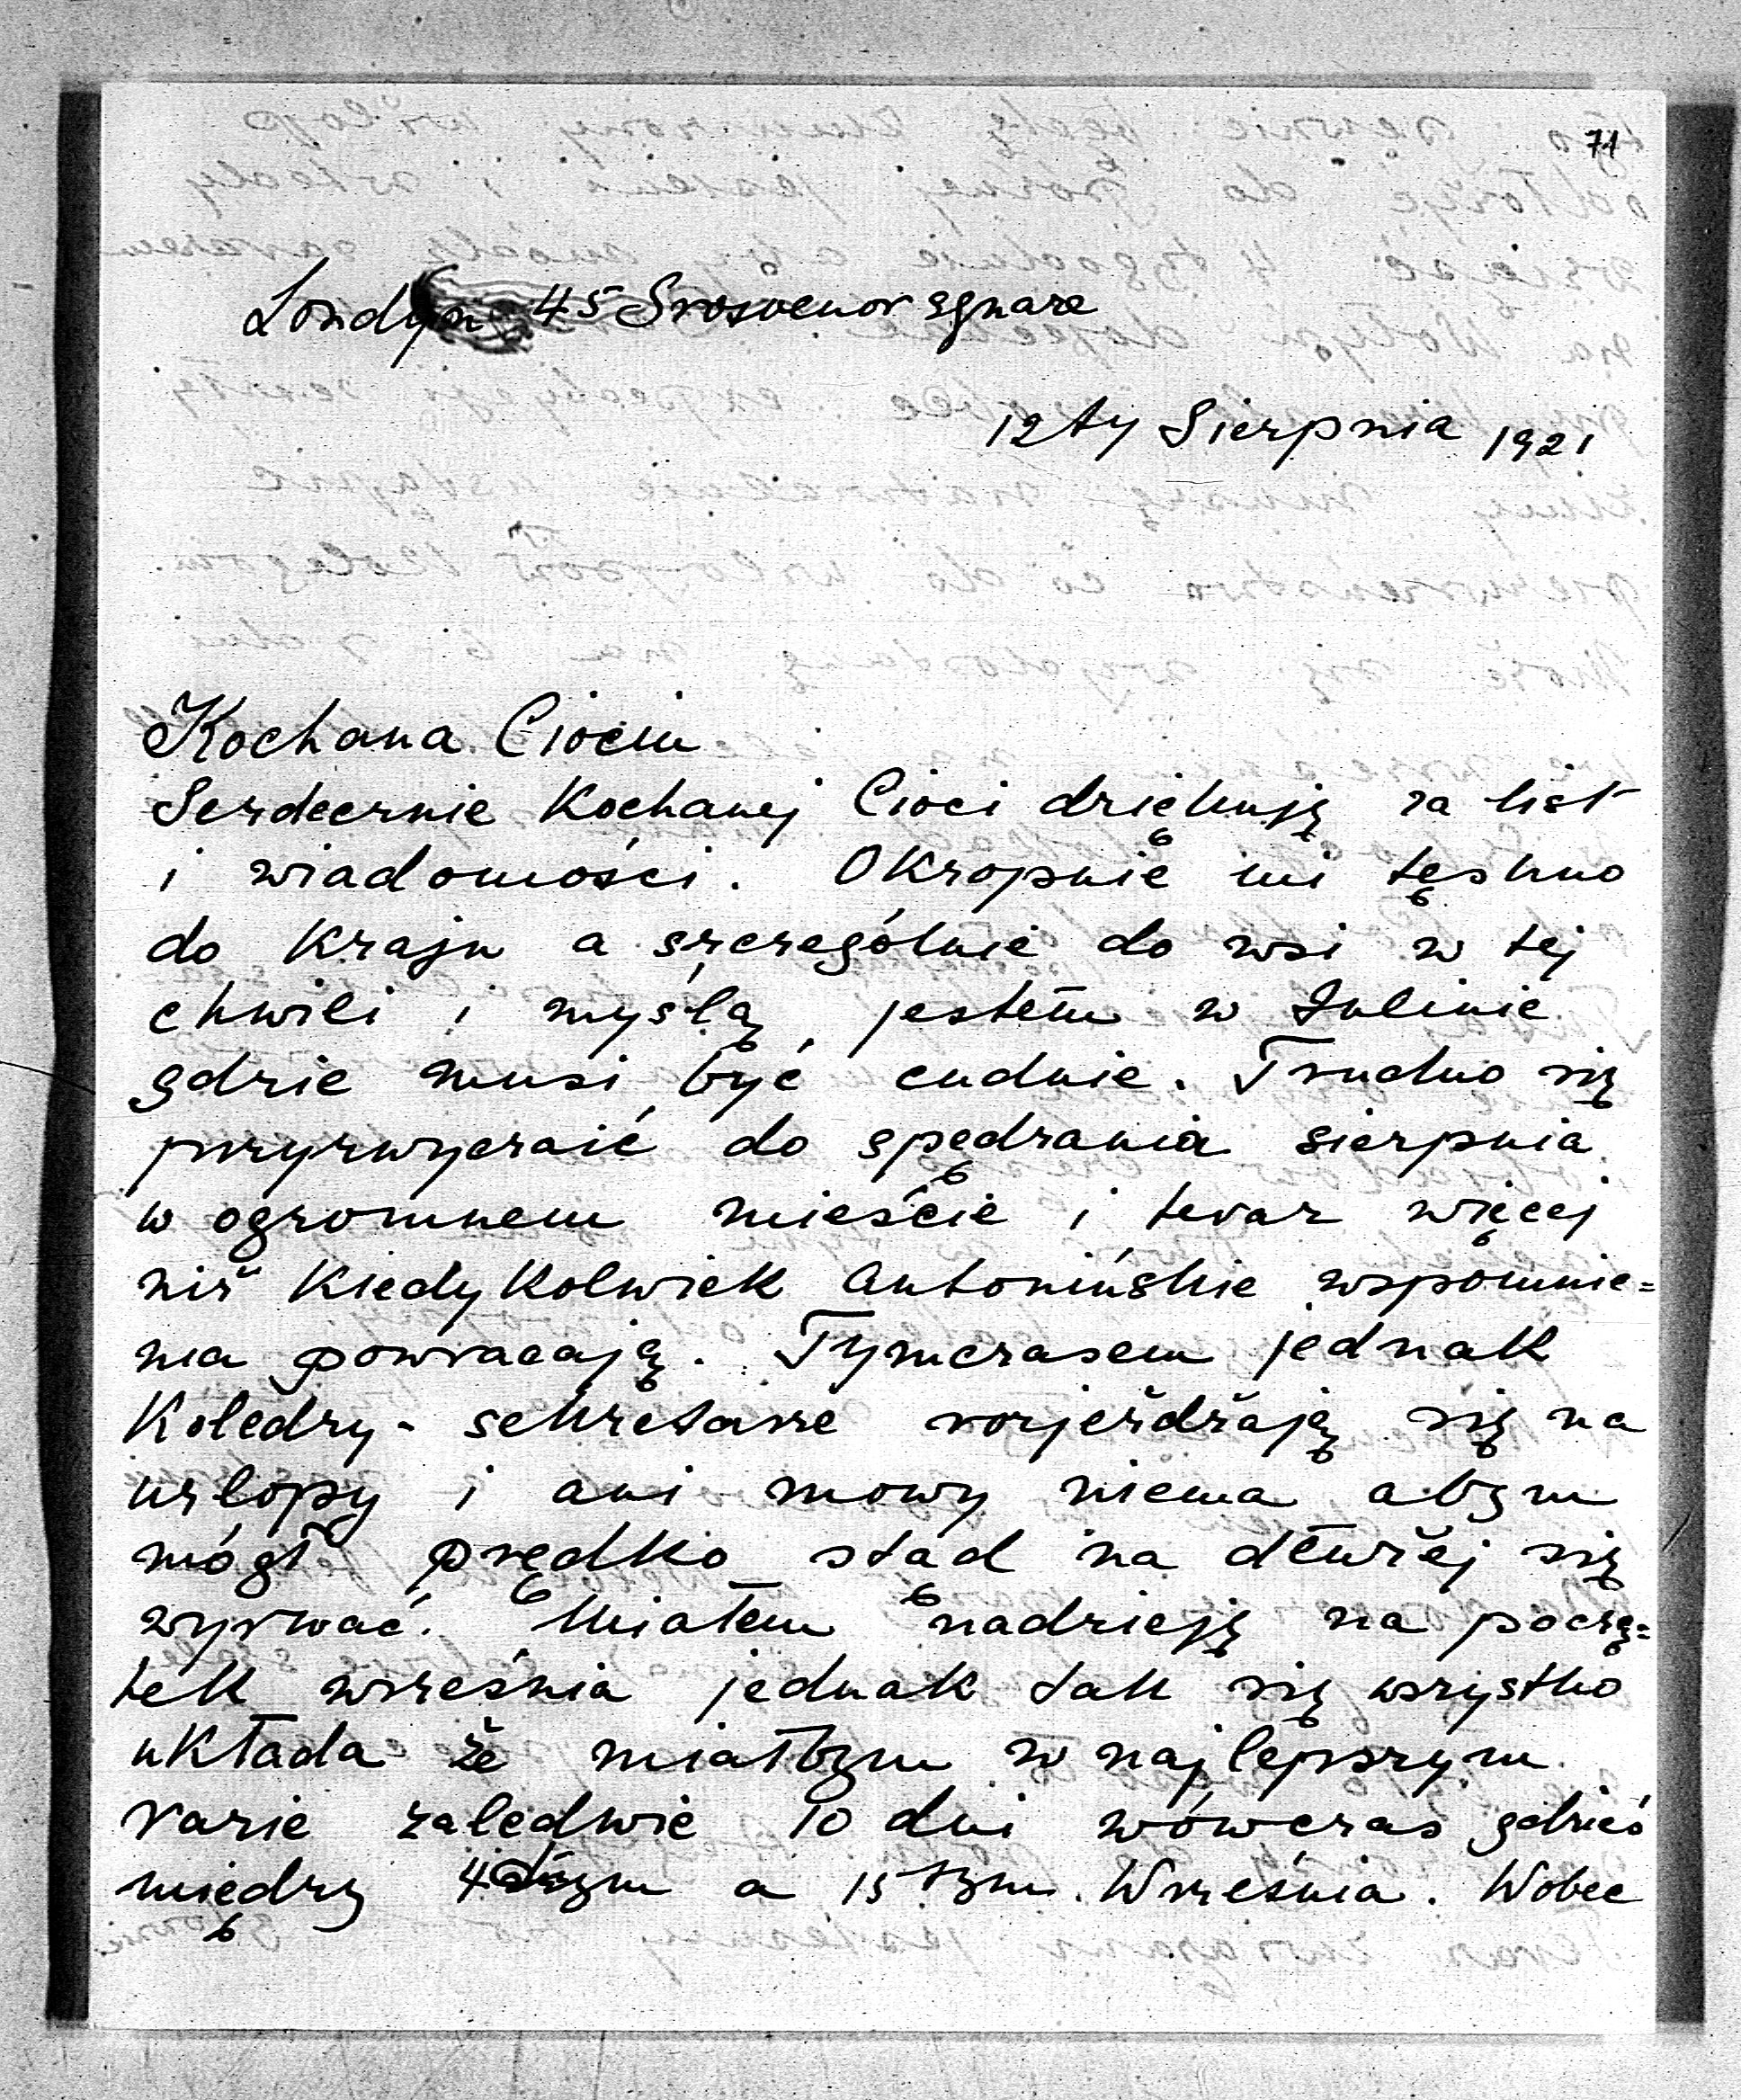 71
Londyn 45 Grosvenor Square
12ty Sierpnia 1921
Kochana Ciociu
Serdecznie Kochanej Cioci dziękuję za list
i wiadomości. Okropnie mi tęskno
do Kraju a szczególnie do wsi w tej
chwili i myślą jestem w Julinie
gdzie musi być cudnie. Trudno się
przyzwyczaić do spędzania sierpnia
w ogromnem mieście i teraz więcej
niż Kiedykolwiek Antonińskie wspomnie=
nia powracają. Tymczasem jednak
Koledzy-sekretarze rozjeżdżają się na
urlopy i ani mowy niema abym
mógł prędko stąd na dłużej się
wyrwać. Miałem nadzieję na począ=
tek września jednak tak się wszystko
układa że miałbym w najlepszym
razie zaledwie 10 dni wówczas gdzieś
między 4tym a 15tym Września. Wobec